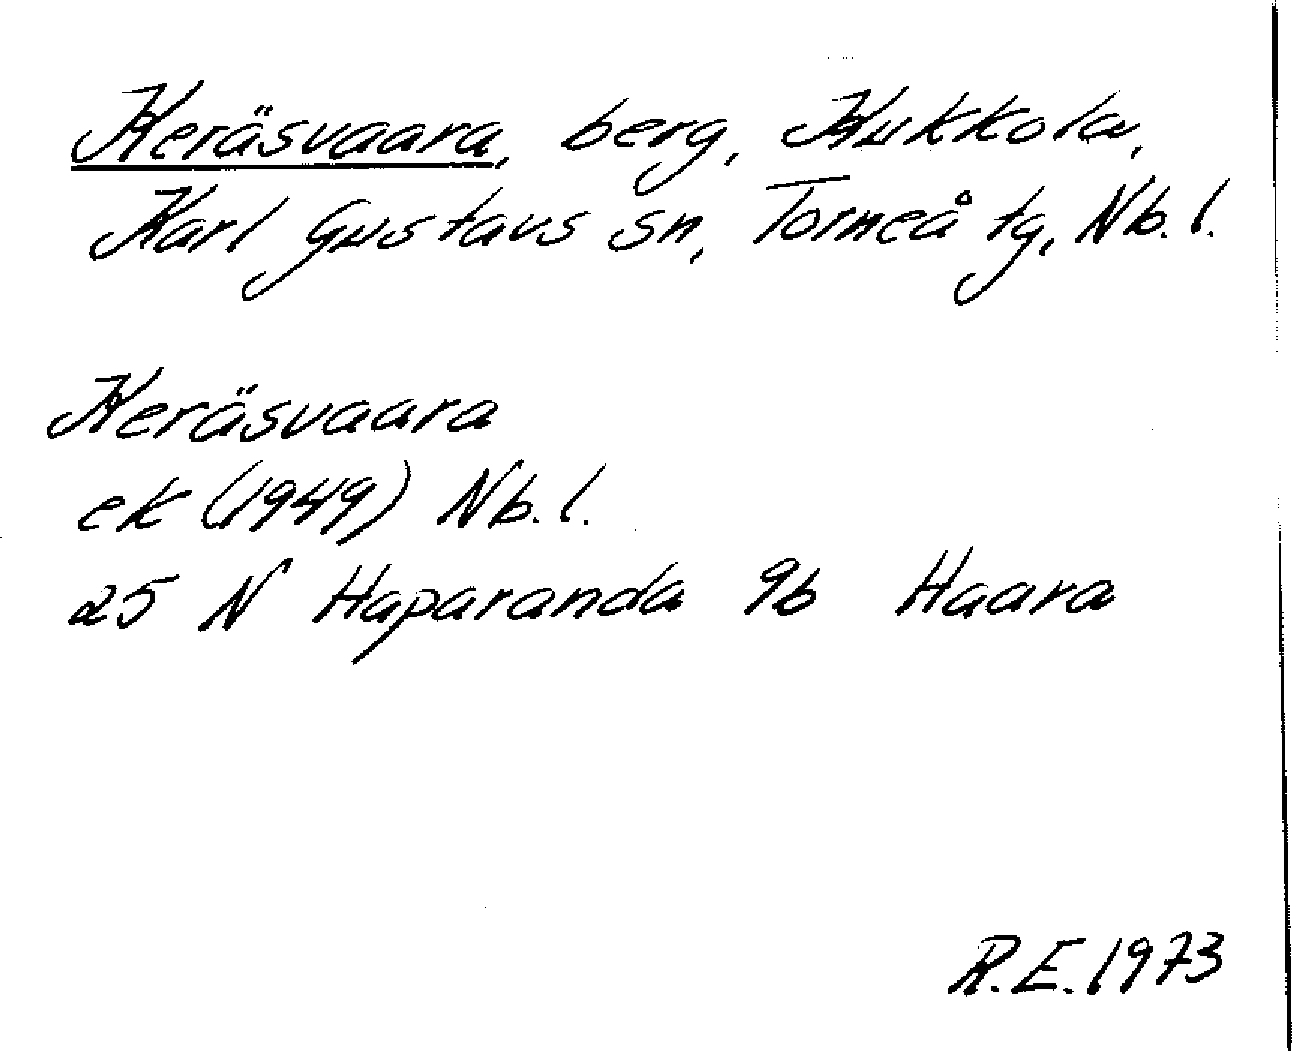 Keräsvaara, berg, Kukkola,
Karl Gustavs sn, Torneå tg, Nb. l.
Keräsvaara
ek (1949) Nb. l.
25 N Haparanda 9b Haara
R.E. 1973